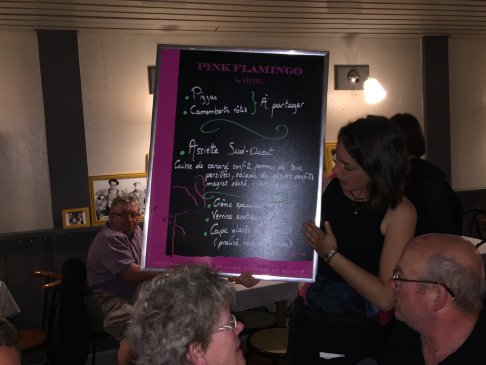 PINK FLAMINGO
by LISTEL
• Pizzas
• Camemberts rôtis } À partager
• Assiette Sud-Ouest
Cuisse de canard confit, pommes de terre
persillées, salade de gésiers confits
magret séché,
• Crème
• Verrine
• Coupe glacée